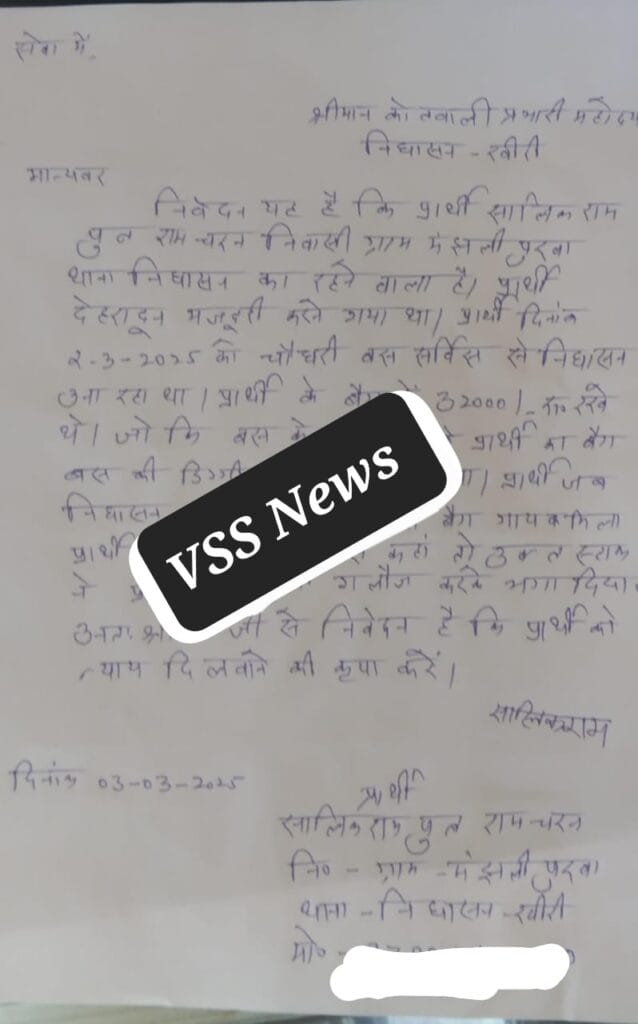 सेवा में,
श्रीमान कोतवाली प्रभारी महोदय
निघासन - खीरी
मान्यवर
निवेदन यह है कि प्रार्थी सालिकराम
पुत्र रामचरन निवासी ग्राम मंझली पुरवा
थाना निघासन का रहने वाला है। प्रार्थी
देहरादून मजदूरी करने गया था। प्रार्थी दिनांक
2-3-2025 को चौधरी बस सर्विस से निघासन
आ रहा था। प्रार्थी के बैग में 32000/- रू० रखे
थे। जो कि बस के प्रार्थी का बैग
बस की डिग्गी प्रार्थी जब
निघासन बैग गायब मिला
प्रार्थी कहा तो उक्त स्टाफ
ने गलौज करके भगा दिया।
अतः जी से निवेदन है कि प्रार्थी को
न्याय दिलवाने की कृपा करें।
सालिकराम
दिनांक 03-03-2025
प्रार्थी
सालिकराम पुत्र रामचरन
नि० - ग्राम - मंझली पुरवा
थाना - निघासन - खीरी
मो० -
VSS News